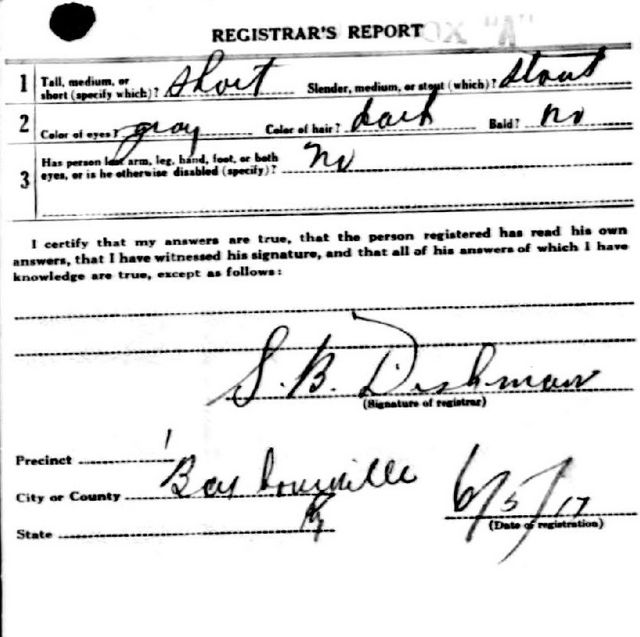 REGISTRAR'S REPORT
1 Tall, medium, or short (specify which)? short Slender, medium, or stout (which)? stout
2 Color of eyes? gray Color of hair? dark Bald? no
3 Has person lost arm, leg, hand, foot, or both
eyes, or is he otherwise disabled (specify)? no
I certify that my answers are true, that the person registered has read his own
answers, that I have witnessed his signature, and that all of his answers of which I have
knowledge are true, except as follows:
S. B. Dishman
(Signature of registrar)
Precinct 1
City or County Barbourville
State Ky
6/5/17
(Date of registration)